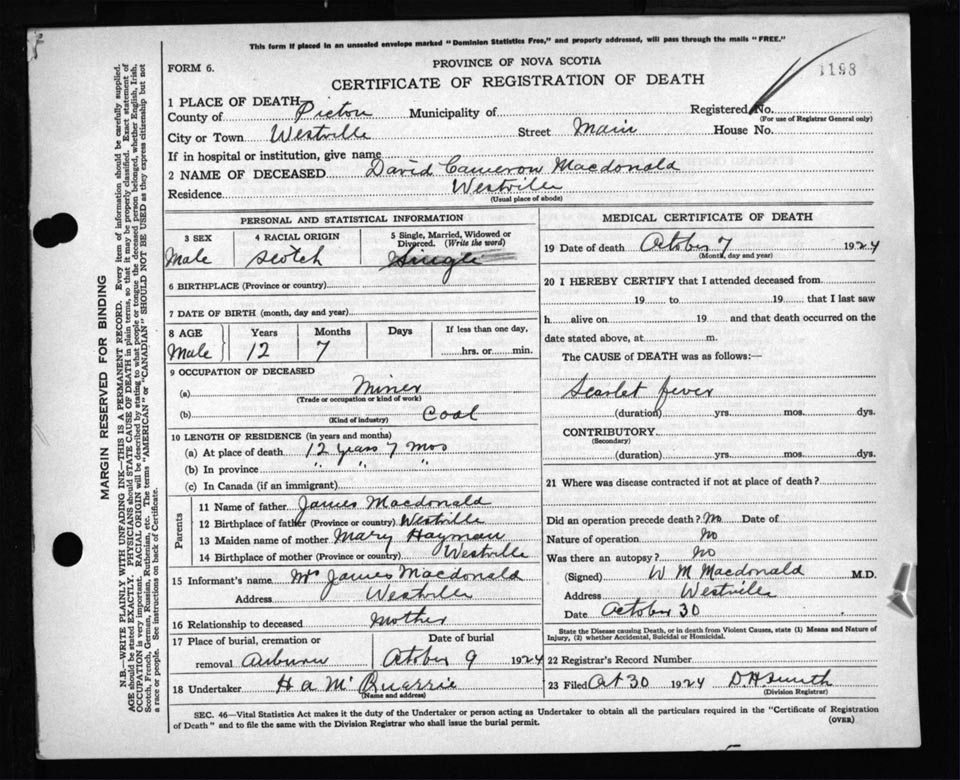 This form if placed in an unsealed envelope marked "Dominion Statistics Free," and properly addressed, will pass through the mails "FREE."
FORM 6.
PROVINCE OF NOVA SCOTIA
1198
CERTIFICATE OF REGISTRATION OF DEATH
1 PLACE OF DEATH
County of Pictou Municipality of Registered No.
(For use of Registrar General only)
City or Town Westville Street Main House No.
If in hospital or institution, give name
2 NAME OF DECEASED David Cameron Macdonald
Residence Westville
(Usual place of abode)
PERSONAL AND STATISTICAL INFORMATION
3 SEX 4 RACIAL ORIGIN 5 Single, Married, Widowed or Divorced. (Write the word)
Male Scotch Single
6 BIRTHPLACE (Province or country)
7 DATE OF BIRTH (month, day and year)
8 AGE Years Months Days If less than one day,
Male 12 7 hrs. or min.
9 OCCUPATION OF DECEASED
(a) Miner
(Trade or occupation or kind of work)
(b) Coal
(Kind of industry)
10 LENGTH OF RESIDENCE (in years and months)
(a) At place of death 12 years 7 mos
(b) In province " " "
(c) In Canada (if an immigrant)
Parents
11 Name of father James Macdonald
12 Birthplace of father (Province or country) Westville
13 Maiden name of mother Mary Hayman
14 Birthplace of mother (Province or country) Westville
15 Informant's name Mrs James Macdonald
Address Westville
16 Relationship to deceased Mother
17 Place of burial, cremation or Date of burial
removal Auburn October 9 1924
18 Undertaker H a McQuarrie
(Name and address)
MEDICAL CERTIFICATE OF DEATH
19 Date of death October 7 1924
(Month, day and year)
20 I HEREBY CERTIFY that I attended deceased from
19 to 19 that I last saw
h alive on 19 and that death occurred on the
date stated above, at m.
The CAUSE of DEATH was as follows:—
Scarlet fever
(duration) yrs. mos. dys.
CONTRIBUTORY
(Secondary)
(duration) yrs. mos. dys.
21 Where was disease contracted if not at place of death?
Did an operation precede death? No Date of
Nature of operation No
Was there an autopsy? No
(Signed) W M Macdonald M.D.
Address Westville
Date October 30
State the Disease causing Death, or in death from Violent Causes, state (1) Means and Nature of
Injury, (2) whether Accidental, Suicidal or Homicidal.
22 Registrar's Record Number
23 Filed Oct 30 1924 D H Smith
(Division Registrar)
SEC. 46—Vital Statistics Act makes it the duty of the Undertaker or person acting as Undertaker to obtain all the particulars required in the "Certificate of Registration
of Death" and to file the same with the Division Registrar who shall issue the burial permit. (OVER)
MARGIN RESERVED FOR BINDING
N.B.—WRITE PLAINLY WITH UNFADING INK—THIS IS A PERMANENT RECORD. Every item of information should be carefully supplied.
AGE should be stated EXACTLY. PHYSICIANS should STATE CAUSE OF DEATH in plain terms, so that it may be properly classified. Exact statement of
OCCUPATION is very important. RACIAL ORIGIN will be described by stating to what people or tongue the deceased person belonged, whether English, Irish,
Scotch, French, German, Russian, Ruthenian, etc. The terms "AMERICAN" or "CANADIAN" SHOULD NOT BE USED as they express citizenship but not
a race or people. See instructions on back of Certificate.